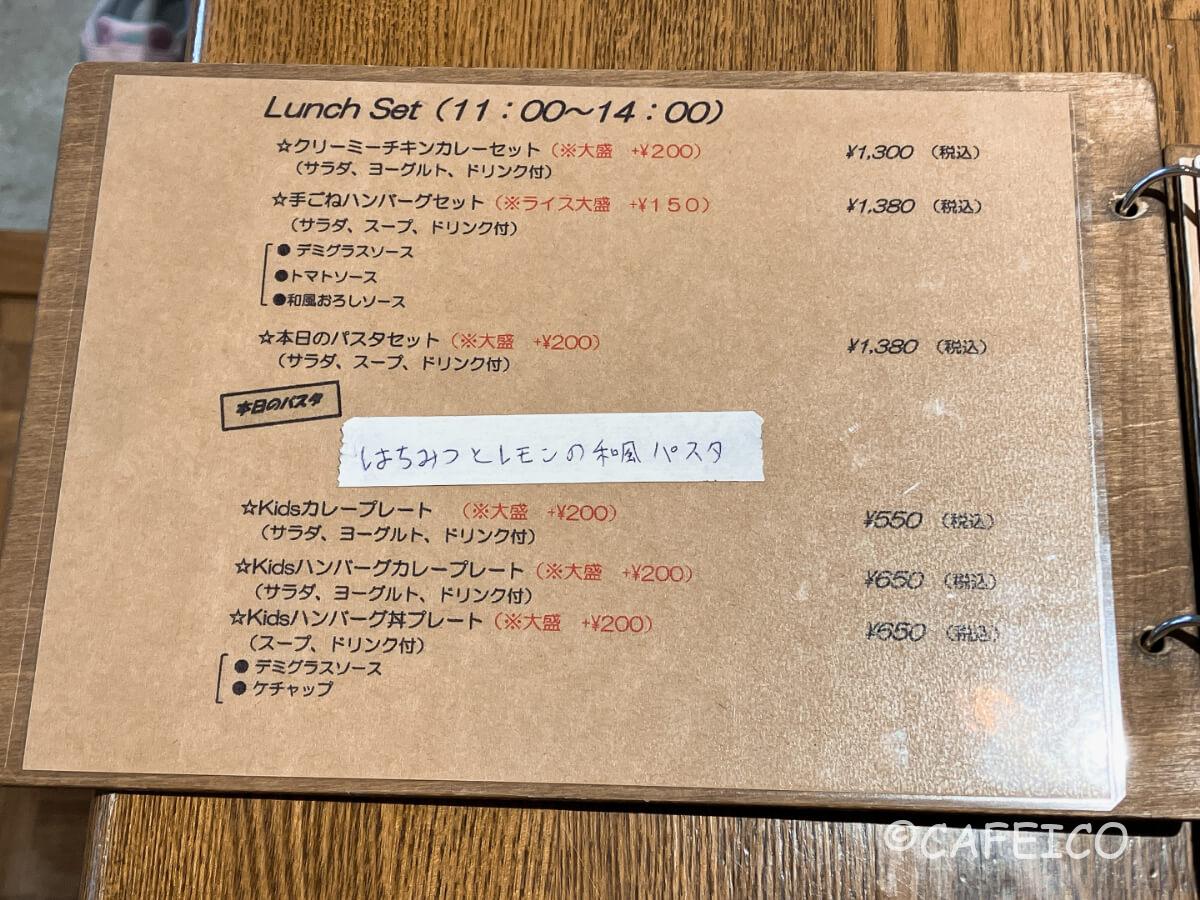 Lunch Set（11：00～14：00）
☆クリーミーチキンカレーセット（※大盛　+¥200） ¥1,300 （税込）
（サラダ、ヨーグルト、ドリンク付）
☆手ごねハンバーグセット（※ライス大盛　+¥１５０） ¥1,380 （税込）
（サラダ、スープ、ドリンク付）
● デミグラスソース
●トマトソース
●和風おろしソース
☆本日のパスタセット（※大盛　+¥200） ¥1,380 （税込）
（サラダ、スープ、ドリンク付）
本日のパスタ
はちみつとレモンの和風パスタ
☆Kidsカレープレート　（※大盛　+¥200） ¥550 （税込）
（サラダ、ヨーグルト、ドリンク付）
☆Kidsハンバーグカレープレート（※大盛　+¥200） ¥650 （税込）
（サラダ、ヨーグルト、ドリンク付）
☆Kidsハンバーグ丼プレート（※大盛　+¥200） ¥650 （税込）
（スープ、ドリンク付）
● デミグラスソース
● ケチャップ
©CAFEICO